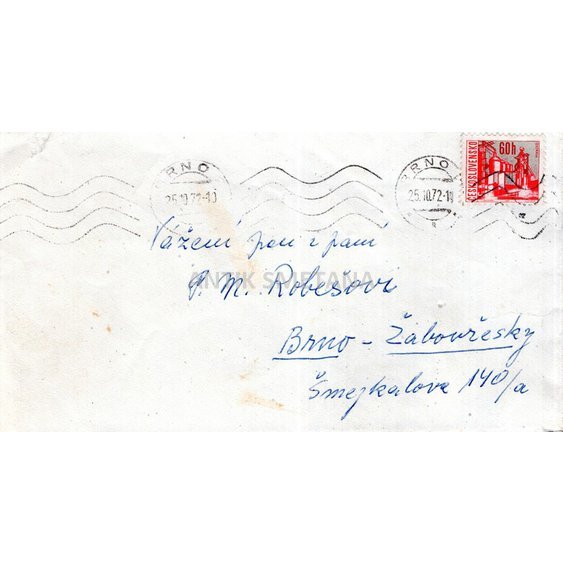 BRNO
25.10.72-10
BRNO
25.10.72-10
a
ČESKOSLOVENSKO
60h
Vážení pan a paní
P. M. Robešovi
ANTIK SMETANA
Brno - Žabovřesky
Šmejkalova 140/a